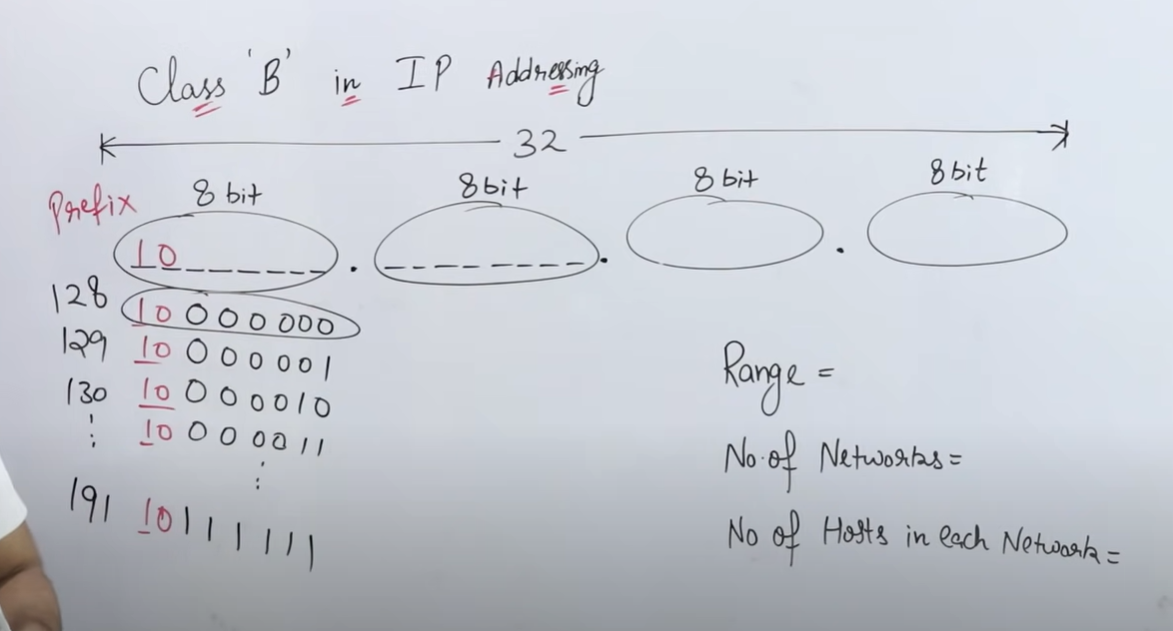 Class 'B' in IP Addressing
32
Prefix 8 bit 8 bit 8 bit 8 bit
10______ . ________ . .
128 10000000
129 10000001
130 10000010
⋮ 10000011
⋮
191 10111111
Range =
No. of Networks =
No of Hosts in each Network =